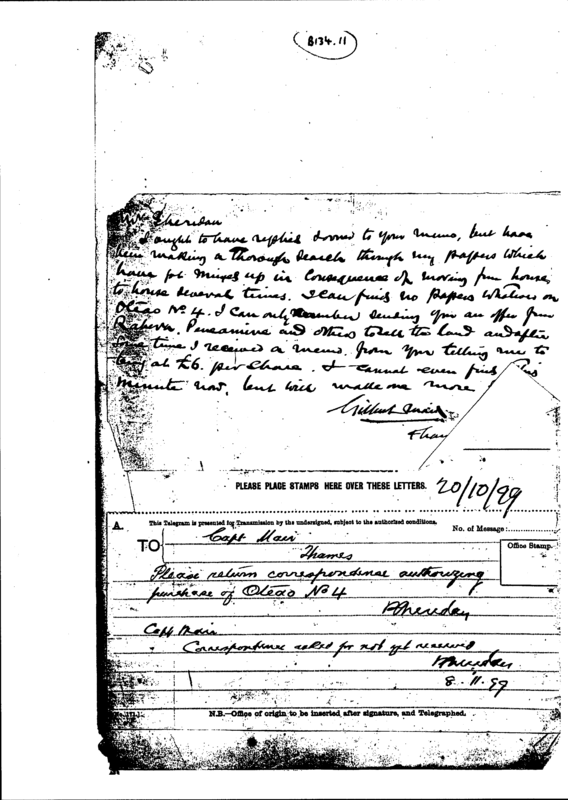 B134.11
Mr Sheridan
I ought to have replied sooner to your memo, but have
been making a thorough search through my papers which
have got mixed up in consequence of moving from house
to house several times. I can find no papers whatever on
Oteao No 4. I can only remember sending you an offer from
and others to sell the land and after
some time I received a memo. from you telling me to
buy at £6. per share. I cannot even find this
minute now, but will make one more
Gilbert Mair
PLEASE PLACE STAMPS HERE OVER THESE LETTERS.
20/10/99
A.
This Telegram is presented for Transmission by the undersigned, subject to the authorized conditions.
No. of Message:
TO
Capt Mair
Office Stamp.
Thames
Please return correspondence authorizing
purchase of Oteao No 4
P Sheridan
Capt Mair
Correspondence asked for not yet received
P Sheridan
8.11.99
N.B.—Office of origin to be inserted after signature, and Telegraphed.